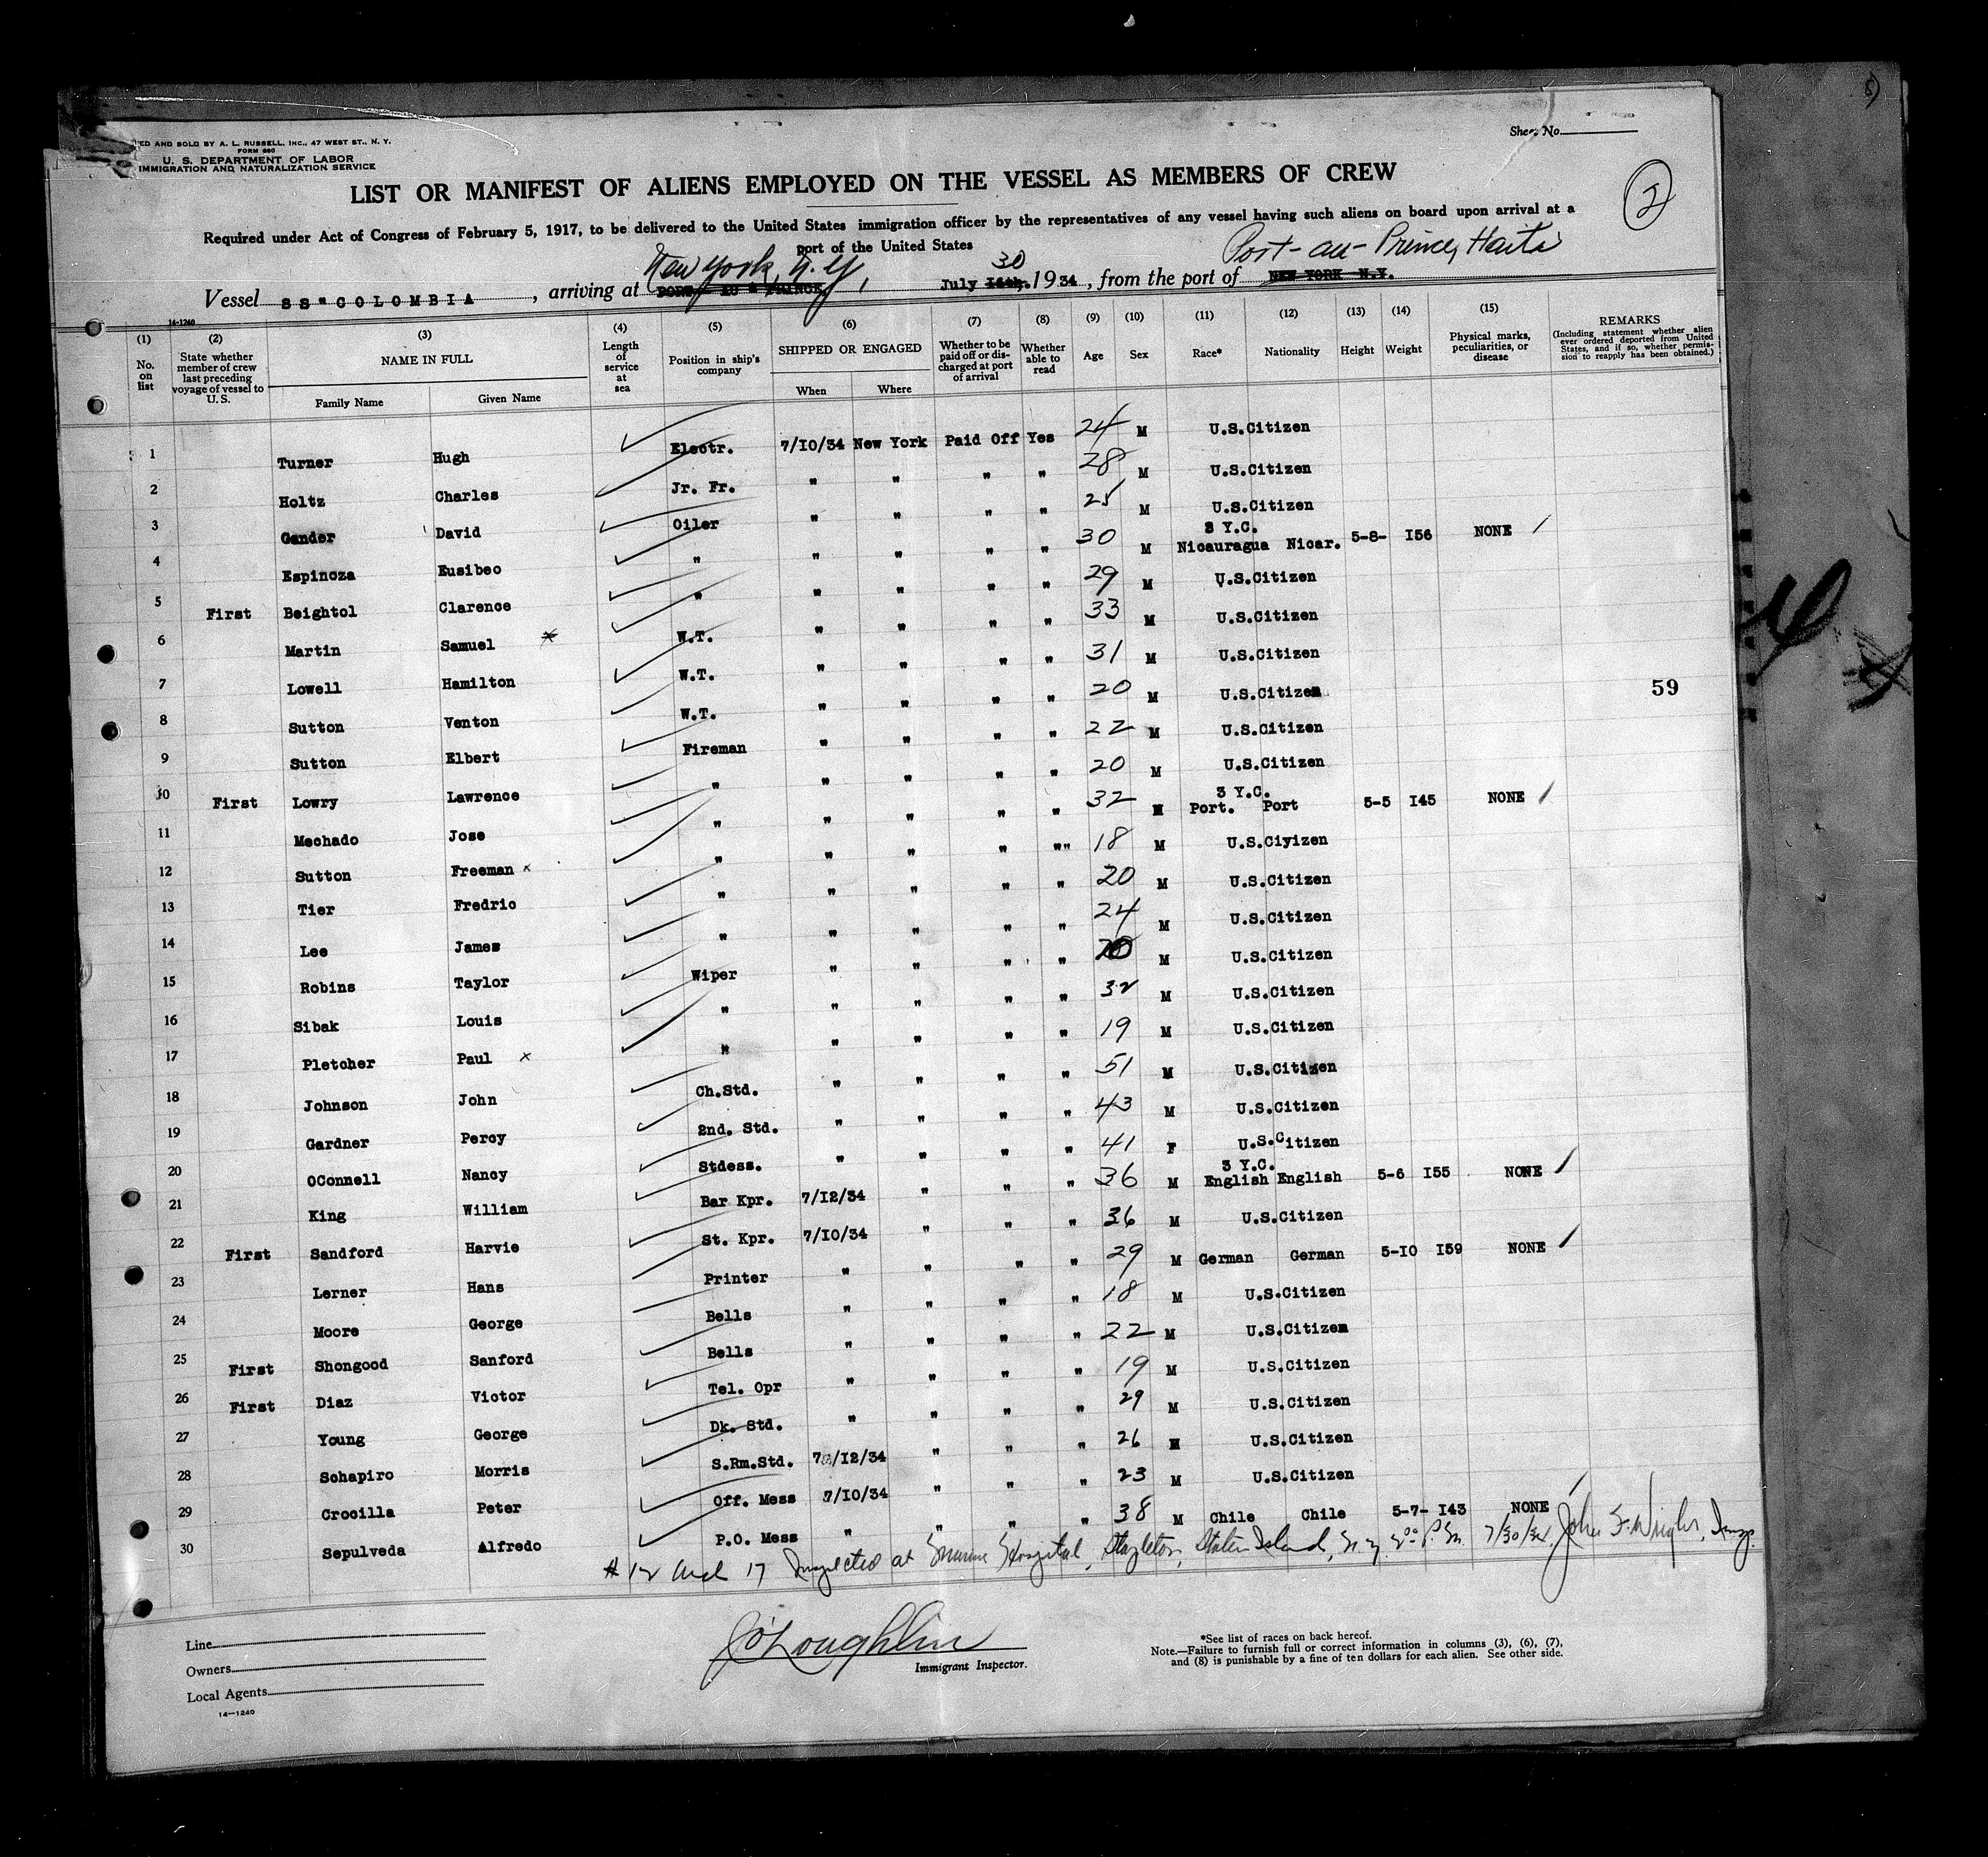 ED AND SOLD BY A. L. RUSSELL, INC., 47 WEST ST., N. Y.
FORM 680
U. S. DEPARTMENT OF LABOR
IMMIGRATION AND NATURALIZATION SERVICE
Sheet No.
LIST OR MANIFEST OF ALIENS EMPLOYED ON THE VESSEL AS MEMBERS OF CREW
2
Required under Act of Congress of February 5, 1917, to be delivered to the United States immigration officer by the representatives of any vessel having such aliens on board upon arrival at a
port of the United States
New York, N.Y., 30 Port-au-Prince, Haiti
Vessel SS"COLOMBIA, arriving at PORT AU PRINCE July 14th. 1934, from the port of NEW YORK N.Y.
14-1240
(1) (2) (3) (4) (5) (6) (7) (8) (9) (10) (11) (12) (13) (14) (15)
No. on list
State whether member of crew last preceding voyage of vessel to U. S.
NAME IN FULL
Family Name
Given Name
Length of service at sea
Position in ship's company
SHIPPED OR ENGAGED
When
Where
Whether to be paid off or discharged at port of arrival
Whether able to read
Age
Sex
Race*
Nationality
Height
Weight
Physical marks, peculiarities, or disease
REMARKS
(Including statement whether alien ever ordered deported from United States, and if so, whether permission to reapply has been obtained.)
1 Turner Hugh Electr. 7/10/34 New York Paid Off Yes 24 M U.S.Citizen
2 Holtz Charles Jr. Fr. " " " " 28 M U.S.Citizen
3 Gander David Oiler " " " " 25 M U.S.Citizen
3 Y.C.
4 Espinoza Eusibeo " " " " " 30 M Nicauragua Nicar. 5-8- I56 NONE
5 First Beightol Clarence " " " " " 29 M U.S.Citizen
6 Martin Samuel W.T. " " " " 33 M U.S.Citizen
7 Lowell Hamilton W.T. " " " " 31 M U.S.Citizen
8 Sutton Venton W.T. " " " " 20 M U.S.Citizen
59
9 Sutton Elbert Fireman " " " " 22 M U.S.Citizen
10 First Lowry Lawrence " " " " " 20 M U.S.Citizen
3 Y.C.
11 Mechado Jose " " " " " 32 M Port. Port 5-5 I45 NONE
12 Sutton Freeman x " " " " "" 18 M U.S.Ciyizen
13 Tier Fredric " " " " " 20 M U.S.Citizen
14 Lee James " " " " " 24 M U.S.Citizen
15 Robins Taylor Wiper " " " " M U.S.Citizen
16 Sibak Louis " " " " " 32 M U.S.Citizen
17 Pletcher Paul x " " " " " 19 M U.S.Citizen
18 Johnson John Ch.Std. " " " " 51 M U.S.Citizen
19 Gardner Percy 2nd. Std. " " " " 43 M U.S.Citizen
20 OConnell Nancy Stdess. " " " " 41 F U.S.Citizen
3 Y.C.
21 King William Bar Kpr. 7/12/34 " " " 36 M English English 5-6 I55 NONE
22 First Sandford Harvie St. Kpr. 7/10/34 " " " 36 M U.S.Citizen
23 Lerner Hans Printer " " " " 29 M German German 5-10 I59 NONE
24 Moore George Bells " " " " 18 M U.S.Citizen
25 First Shongood Sanford Bells " " " " 22 M U.S.Citizen
26 First Diaz Victor Tel. Opr " " " " 19 M U.S.Citizen
27 Young George Dk. Std. " " " " 29 M U.S.Citizen
28 Schapiro Morris S.Rm.Std. 7/12/34 " " " 26 M U.S.Citizen
29 Crocilla Peter Off. Mess 7/10/34 " " " 23 M U.S.Citizen
30 Sepulveda Alfredo P.O. Mess " " " " 38 M Chile Chile 5-7- I43 NONE
#12 and 17 Inspected at Marine Hospital, Stapleton, Staten Island, N.Y. 2:00 P.M. 7/30/34. John F. Wright, Insp.
J O'Loughlin
Immigrant Inspector.
Line
Owners
Local Agents
14—1240
*See list of races on back hereof.
Note.—Failure to furnish full or correct information in columns (3), (6), (7),
and (8) is punishable by a fine of ten dollars for each alien. See other side.